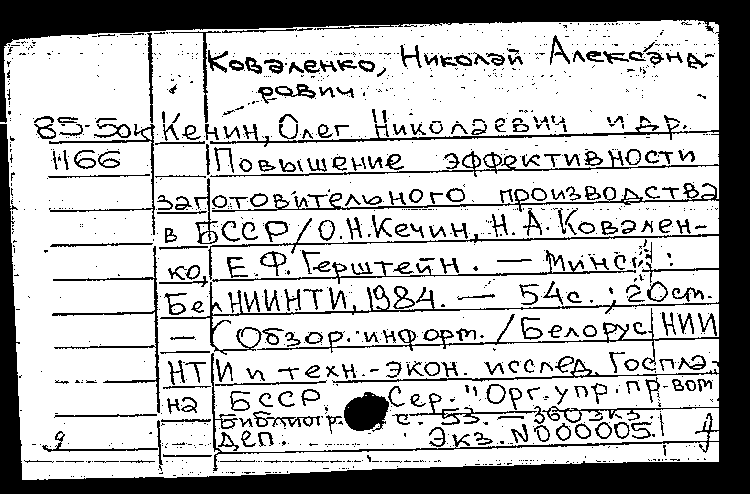 Коваленко, Николай Александ-
рович.
85-50к Кечин, Олег Николаевич и др.
Н66 Повышение эффективности
заготовительного производства
в БССР / О.Н.Кечин, Н.А.Ковален-
ко, Е.Ф.Герштейн. — Минск :
БелНИИНТИ, 1984. — 54с.; 20см.
— (Обзор. информ. / Белорус. НИИ
НТИ и техн.-экон. исслед. Госпла-
на БССР. Сер. "Орг. упр. пр-вом
Библиогр. с. 53. — 360 экз.
Деп. Экз. N000005.